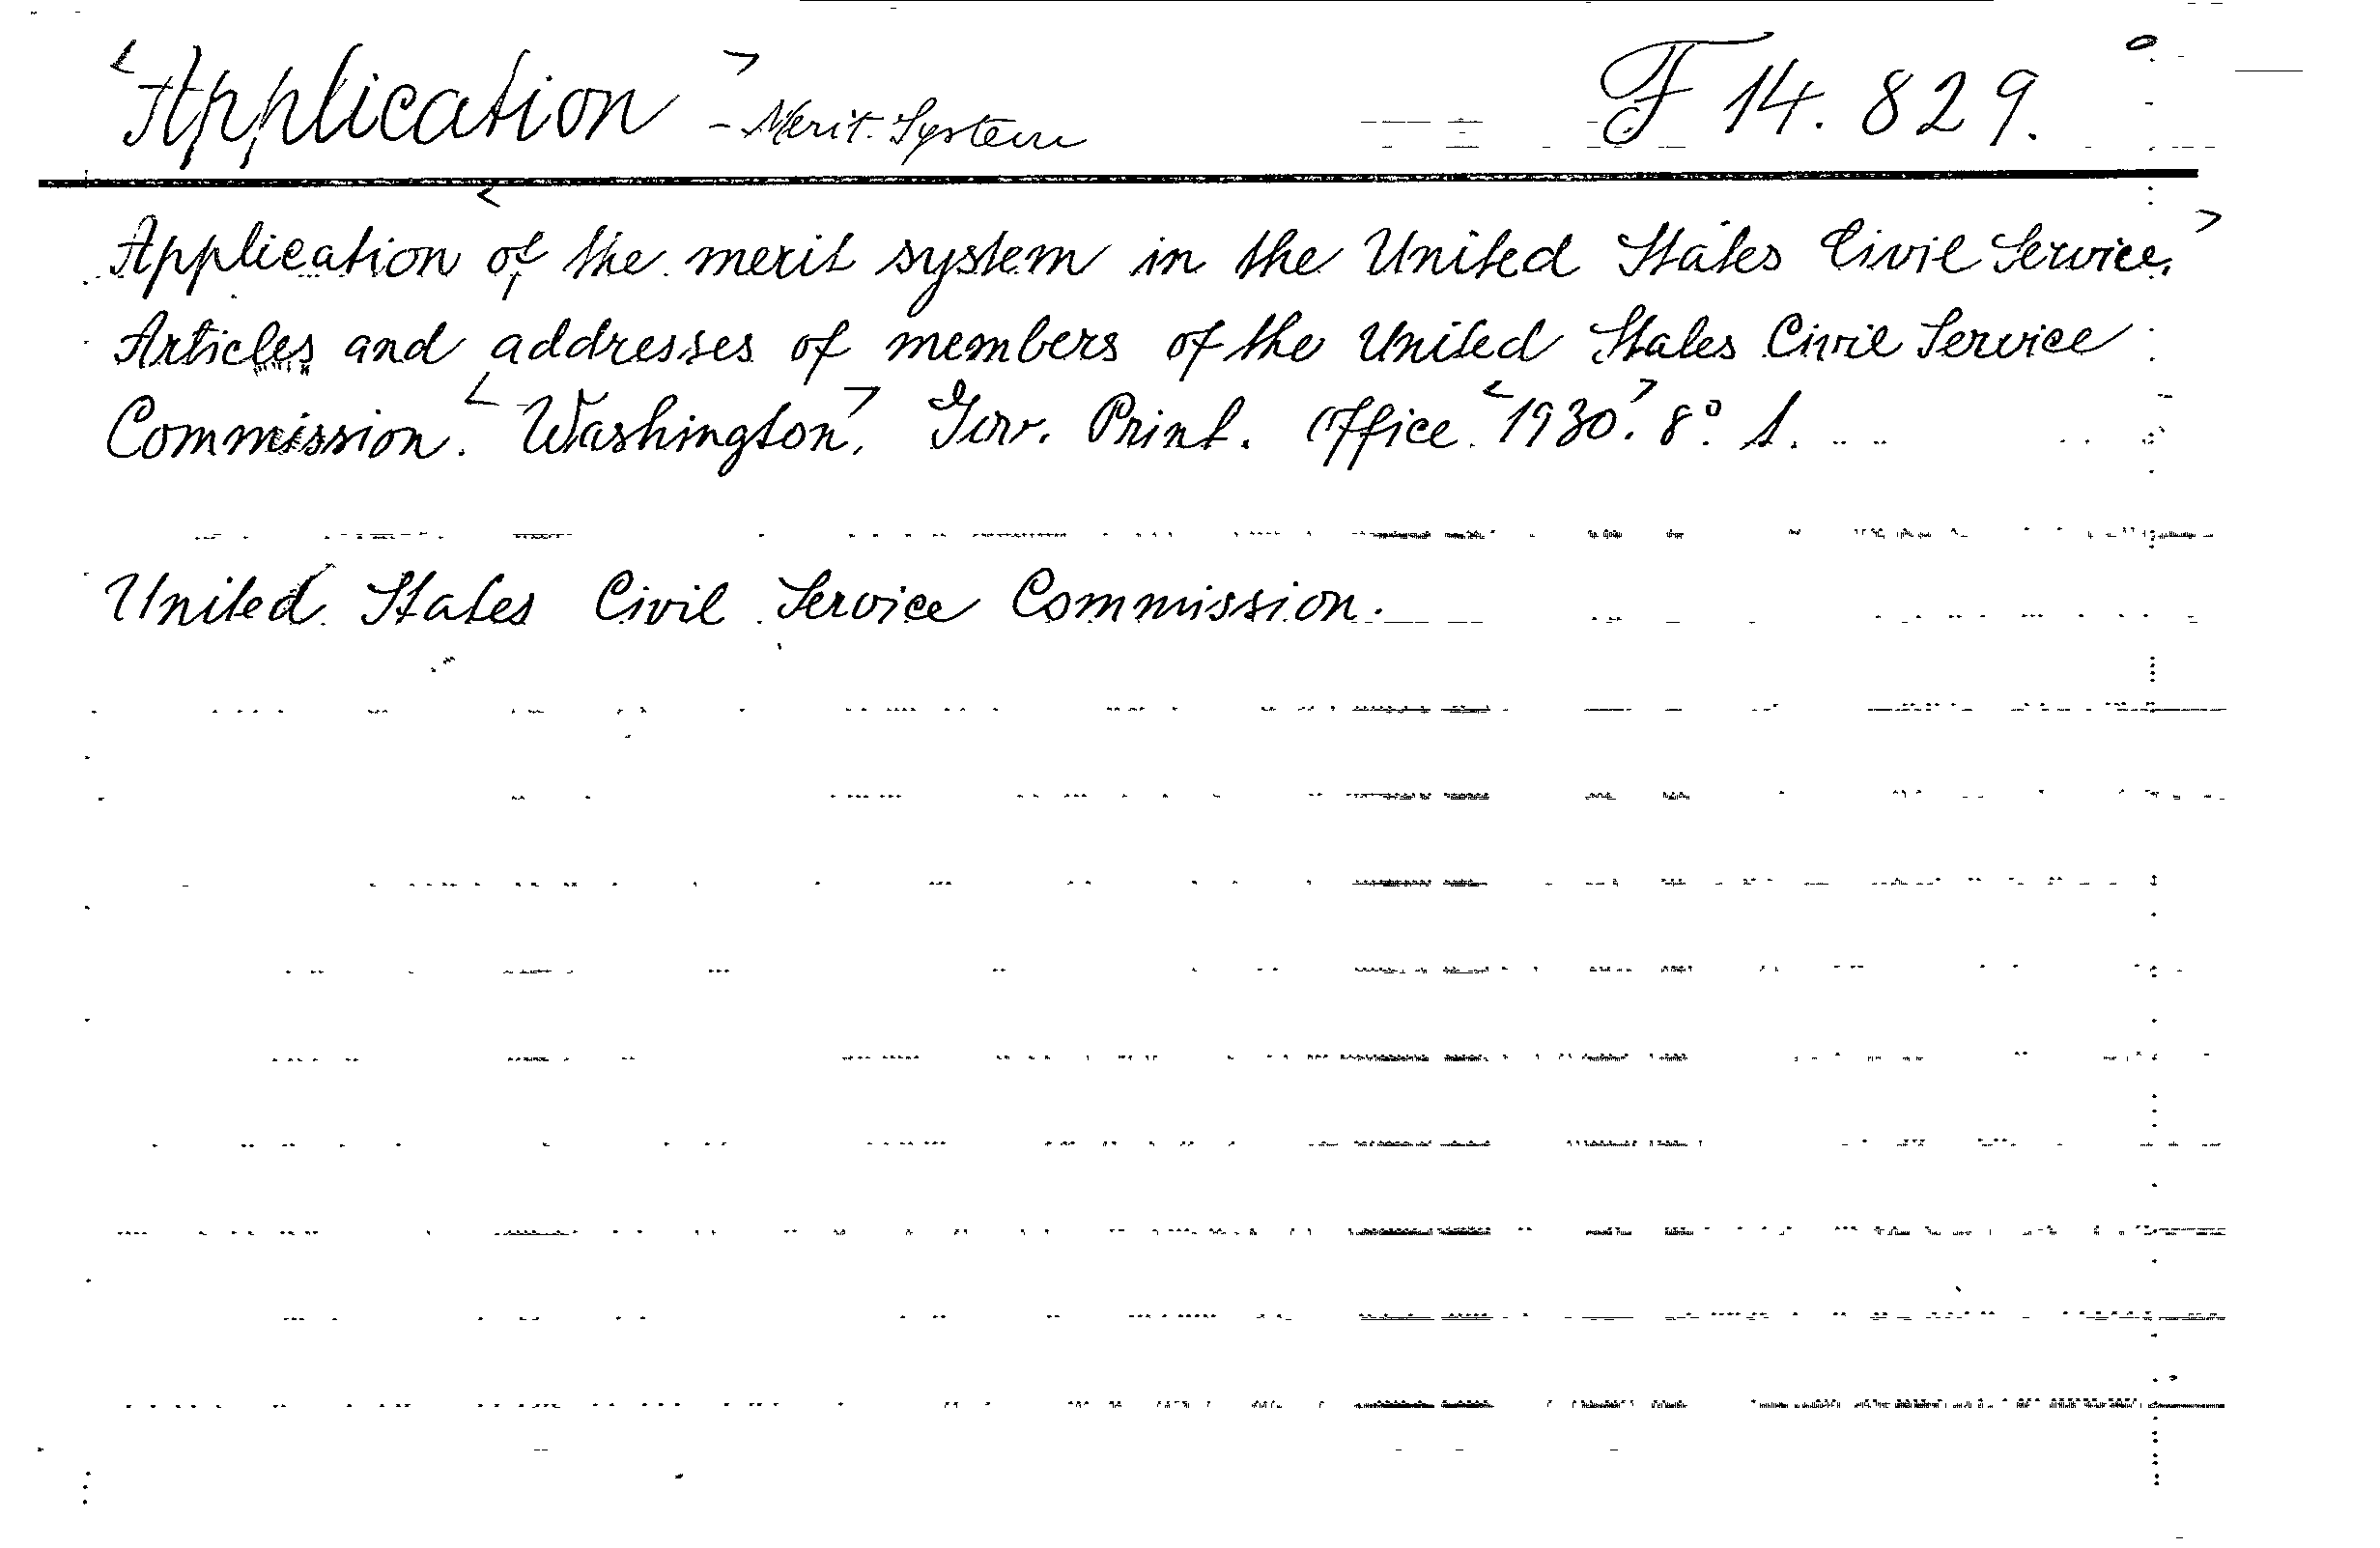 <Application> - Merit. System F 14. 829.
Application <of the merit system in the United States Civil Service.>
Articles and addresses of members of the United States Civil Service
Commission. <Washington>, Gov. Print. Office. <1930>. 8º. 1.
United States Civil Service Commission.